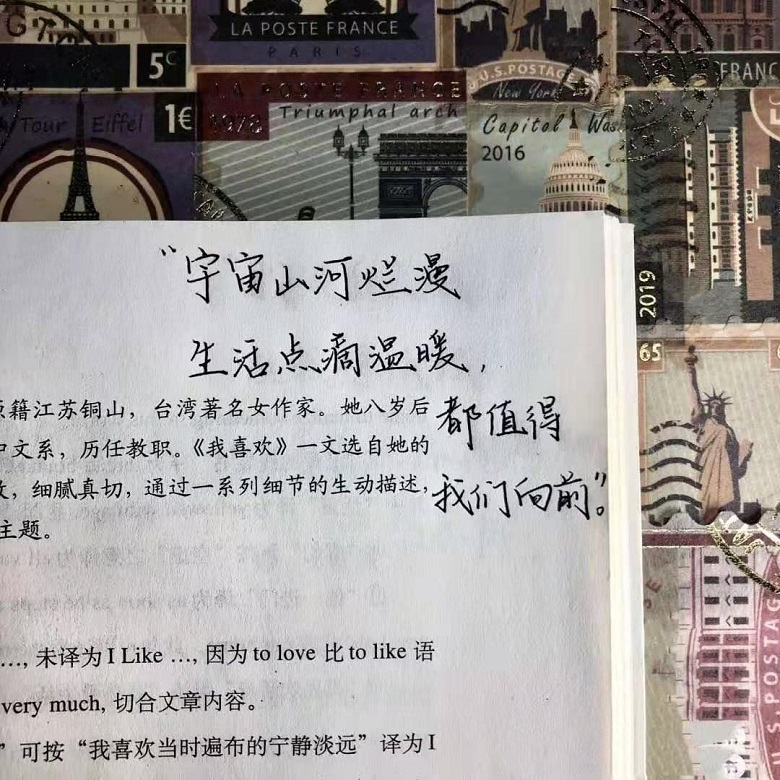 LA POSTE FRANCE
PARIS
5c
U.S.POSTAGE
New York
FRANC
LA POSTE FRANCE
Tour Eiffel
1€
1978
Triumphal arch
Capitol Was
2016
2019
65
“宇宙山河烂漫
生活点滴温暖，
都值得
我们向前”。
原籍江苏铜山，台湾著名女作家。她八岁后
中文系，历任教职。《我喜欢》一文选自她的
，细腻真切，通过一系列细节的生动描述，
主题。
…, 未译为 I Like …, 因为 to love 比 to like 语
very much, 切合文章内容。
” 可按“我喜欢当时遍布的宁静淡远”译为 I